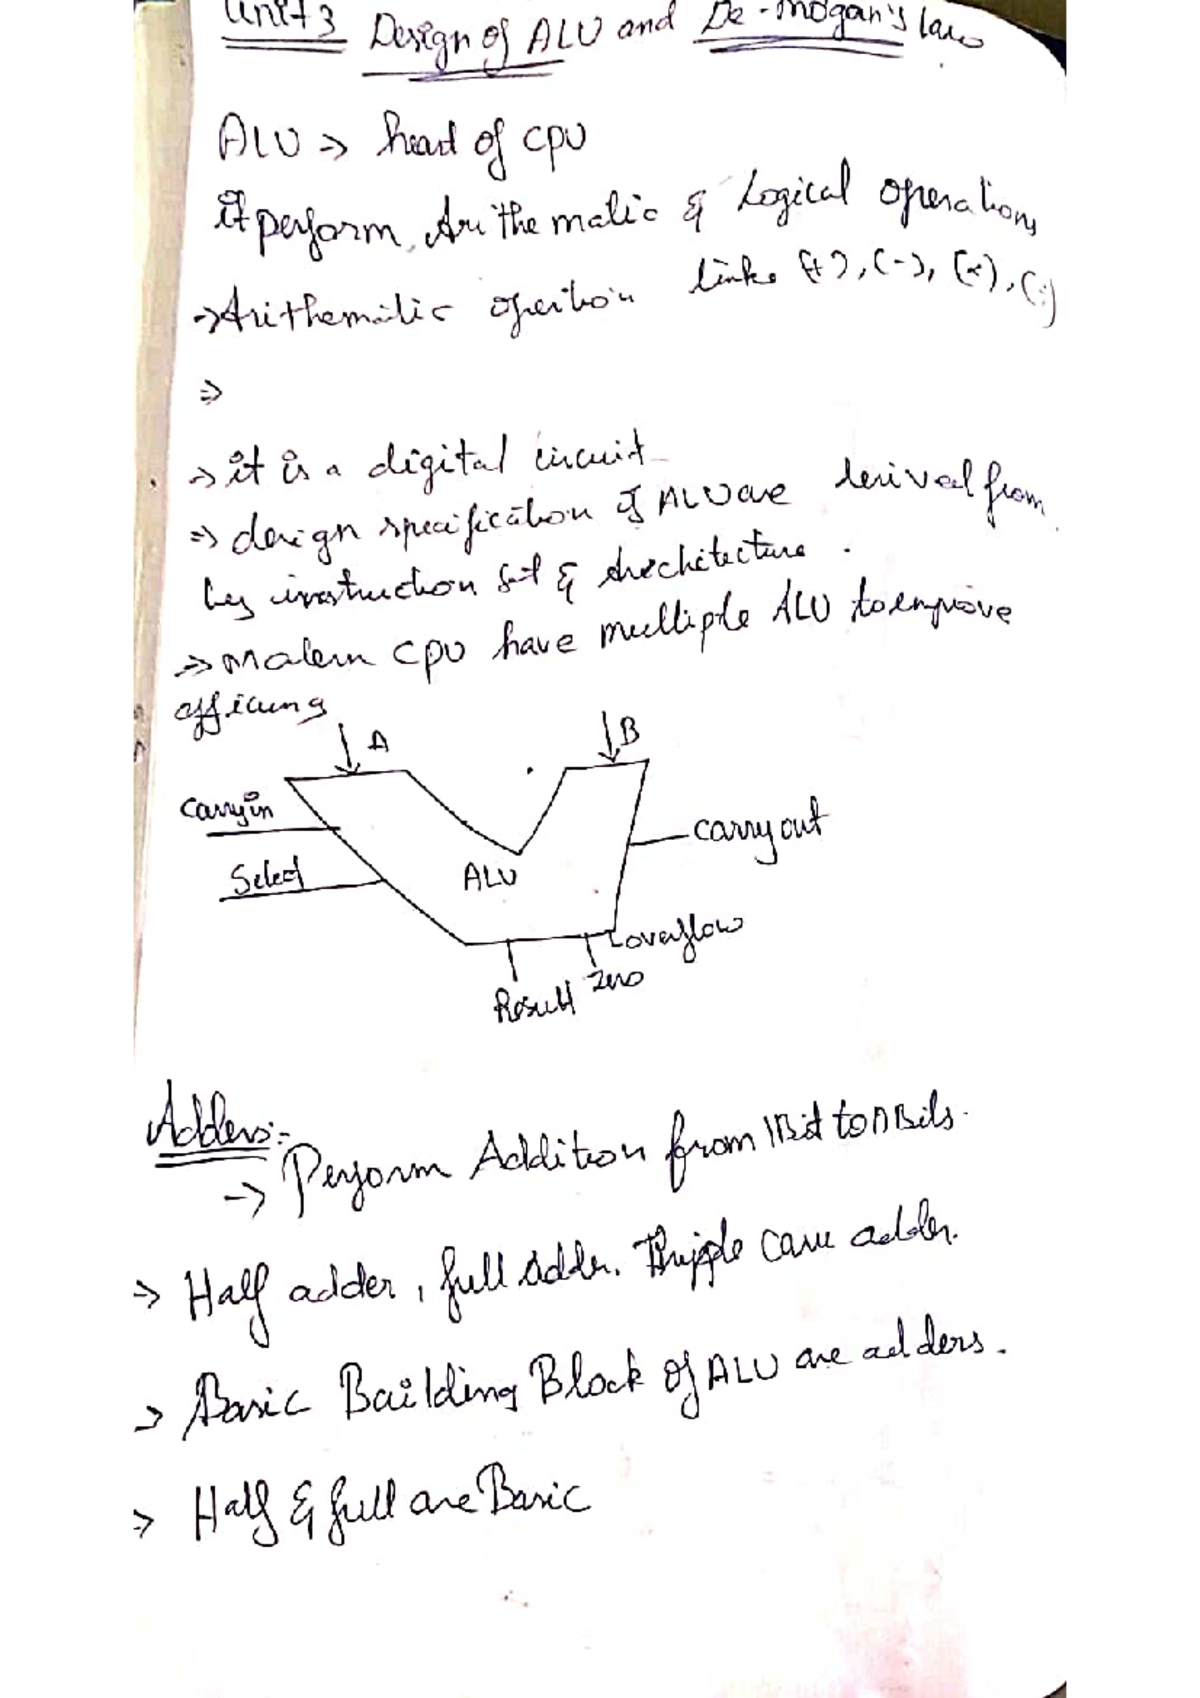 Unit 3 Design of ALU and De-mogan's law
ALU => head of CPU
it perform Arithematic & Logical operations
-> Arithematic opertion link (+), (-), (×), (÷)
=>
-> it is a digital circuit
=> design specification of ALU are derived from
by instruction set & Archetecture.
-> Modern CPU have multiple ALU to improve
A
B
Carry in
Select
ALU
Carry out
overflow
Zero
Result
Adders:-
-> Perform Addition from 1Bit to n Bits.
-> Half adder, full Adder. Ripple adder.
-> Basic Building Block of ALU are adders.
-> Half & full are Basic